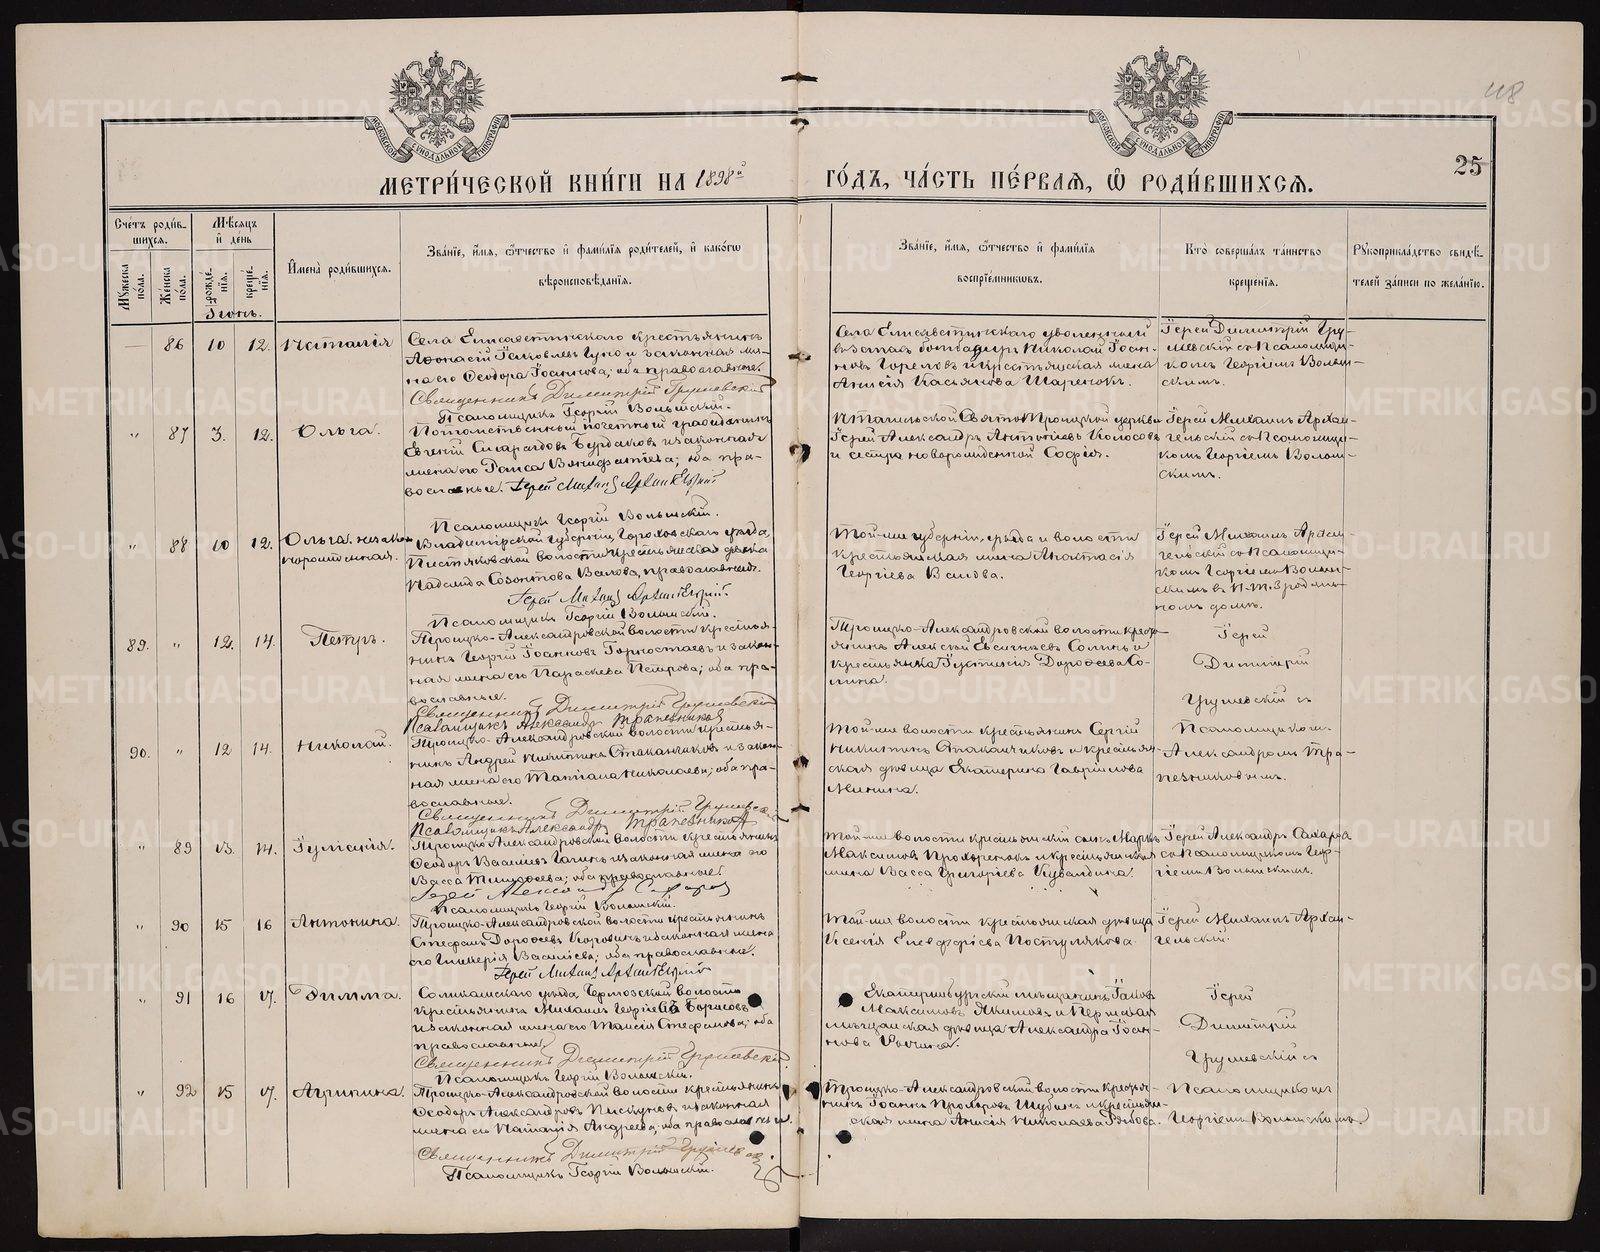 118
25
МОСКОВСКОЙ СѴНОДАЛЬНОЙ ТИПОГРАФІИ
МОСКОВСКОЙ СѴНОДАЛЬНОЙ ТИПОГРАФІИ
МЕТРИ́ЧЕСКОЙ КНИ́ГИ НА 1898й
ГО́ДЪ, ЧА́СТЬ ПЕ́РВАЯ, Ѡ РОДИ́ВШИХСЯ.
Сче́тъ роди́вшихся.
Му́жеска по́ла.
Же́нска по́ла.
Мѣ́сяцъ и де́нь
рожде́нїя.
креще́нїя.
Имена̀ роди́вшихся.
Зва́нїе, и́мя, ѻ́тчество и фами́лїя роди́телей, и како́гѡ
вѣроисповѣ́данїя.
Зва́нїе, и́мя, ѻ́тчество и фами́лїя
воспрїе́мниковъ.
Кто̀ соверша́лъ та́инство
креще́нїя.
Рукоприкла́дство свидѣ́-
телей за́писи по жела́нїю.
Іюнь.
— 86 10 12. Наталія
Села Елисаветинскаго крестьянинъ
Аѳонасій Іаковлевъ и законная же-
на его Ѳеодора Іоаннова; оба православные.
Священникъ Димитрій Грушевскій
Псаломщикъ Георгій Волынскій.
Села Елисаветинскаго уволенный
въ запасъ бомбадиръ Николай Іоан-
новъ Гореловъ и крестьянская жена
Анисія Касьянова Шаренокъ.
Іерей Димитрій Гру-
шевскій съ Псаломщи-
комъ Георгіемъ Волын-
скимъ.
" 87 3. 12. Ольга.
Потомственный почетный гражданинъ
Евгеній Смарагдовъ Бурдаковъ и законная
жена его Раиса Вонифатіева; оба пра-
вославные. Іерей Михаилъ Архангельскій
Псаломщикъ Георгій Волынскій.
Свято-Троицкой церкви
Іерей Александръ Антоніевъ Колосовъ
и сестра новорожденной Софія.
Іерей Михаилъ Архан-
гельскій съ Псаломщи-
комъ Георгіемъ Волын-
скимъ.
" 88 10 12. Ольга незакон-
норожденная.
Владимірской губерніи, Гороховскаго уѣзда,
Пестяковской волости крестьянская дѣвка
Надежда Созонтова Вилова, православная.
Іерей Михаилъ Архангельскій.
Псаломщикъ Георгій Волынскій.
Той-же губерніи, уѣзда и волости
крестьянская жена Анастасія
Георгіева Вилова.
Іерей Михаилъ Архан-
гельскій съ Псаломщи-
комъ Георгіемъ Волын-
скимъ въ родиль-
номъ домѣ.
89. " 12. 14. Петръ.
Троицко-Александровской волости крестья-
нинъ Георгій Іоанновъ Горностаевъ и закон-
ная жена его Параскева Петрова; оба пра-
вославные.
Священникъ Димитрій Грушевскій
Псаломщикъ Александръ Трапезниковъ
Троицко-Александровской волости кресть-
янинъ Алексій Евсигніевъ Солинъ и
крестьянка Іустинія Дороѳеева Со-
лина.
Іерей
Димитрій
Грушевскій съ
90. " 12 14. Николай.
Троицко-Александровской волости крестья-
нинъ Андрей Никитинъ Стаканчиковъ и закон-
ная жена его Татіана Николаева; оба пра-
вославные.
Священникъ Димитрій Грушевскій
Псаломщикъ Александръ Трапезниковъ
Той-же волости крестьянинъ Сергій
Никитинъ Стаканчиковъ и крестьян-
ская дѣвица Екатерина Гавріилова
Минина.
Псаломщикомъ
Александромъ Тра-
пезниковымъ.
" 89 13. 14. Іулианія.
Троицко-Александровской волости крестьянинъ
Ѳеодоръ Василіевъ и законная жена его
Васса Тимоѳеева; оба православные
Іерей Александръ Сахаровъ
Псаломщикъ Георгій Волынскій.
Той-же волости крестьянскій сынъ Маркъ
Максимовъ Прохоренокъ и крестьянская
жена Васса Григоріева Кувалдина.
Іерей Александръ Сахаровъ
съ Псаломщикомъ Геор-
гіемъ Волынскимъ.
" 90 15 16 Антонина.
Троицко-Александровской волости крестьянинъ
Стефанъ Дороѳеевъ и законная жена
его Гликерія Василіева; оба православные.
Іерей Михаилъ Архангельскій
Той-же волости крестьянская дѣвица
Ксенія Елевѳеріева Постулякова.
Іерей Михаилъ Архан-
гельскій.
" 91 16 17. Римма.
Соликамскаго уѣзда Чермозской волости
крестьянинъ Михаилъ Георгіевъ Борисовъ
и законная жена его Таисія Стефанова; оба
православные
Священникъ Димитрій Грушевскій
Псаломщикъ Георгій Волынскій.
Екатеринбургскій мѣщанинъ Іаковъ
Максимовъ Якимовъ и Пермская
мѣщанская дѣвица Александра Іоан-
нова
Іерей
Димитрій
Грушевскій съ
" 92 15 17. Агрипина.
Троицко-Александровской волости крестьянинъ
Ѳеодоръ Александровъ Пискуновъ и законная
жена его Наталія Андреева; оба православные.
Священникъ Димитрій Грушевскій
Псаломщикъ Георгій Волынскій.
Троицко-Александровской волости крестья-
нинъ Іоаннъ Прохоровъ Шубинъ и крестьян-
ская жена Анисія Николаева Рябова.
Псаломщикомъ
Георгіемъ Волынскимъ.
METRIKI.GASO-URAL.RU